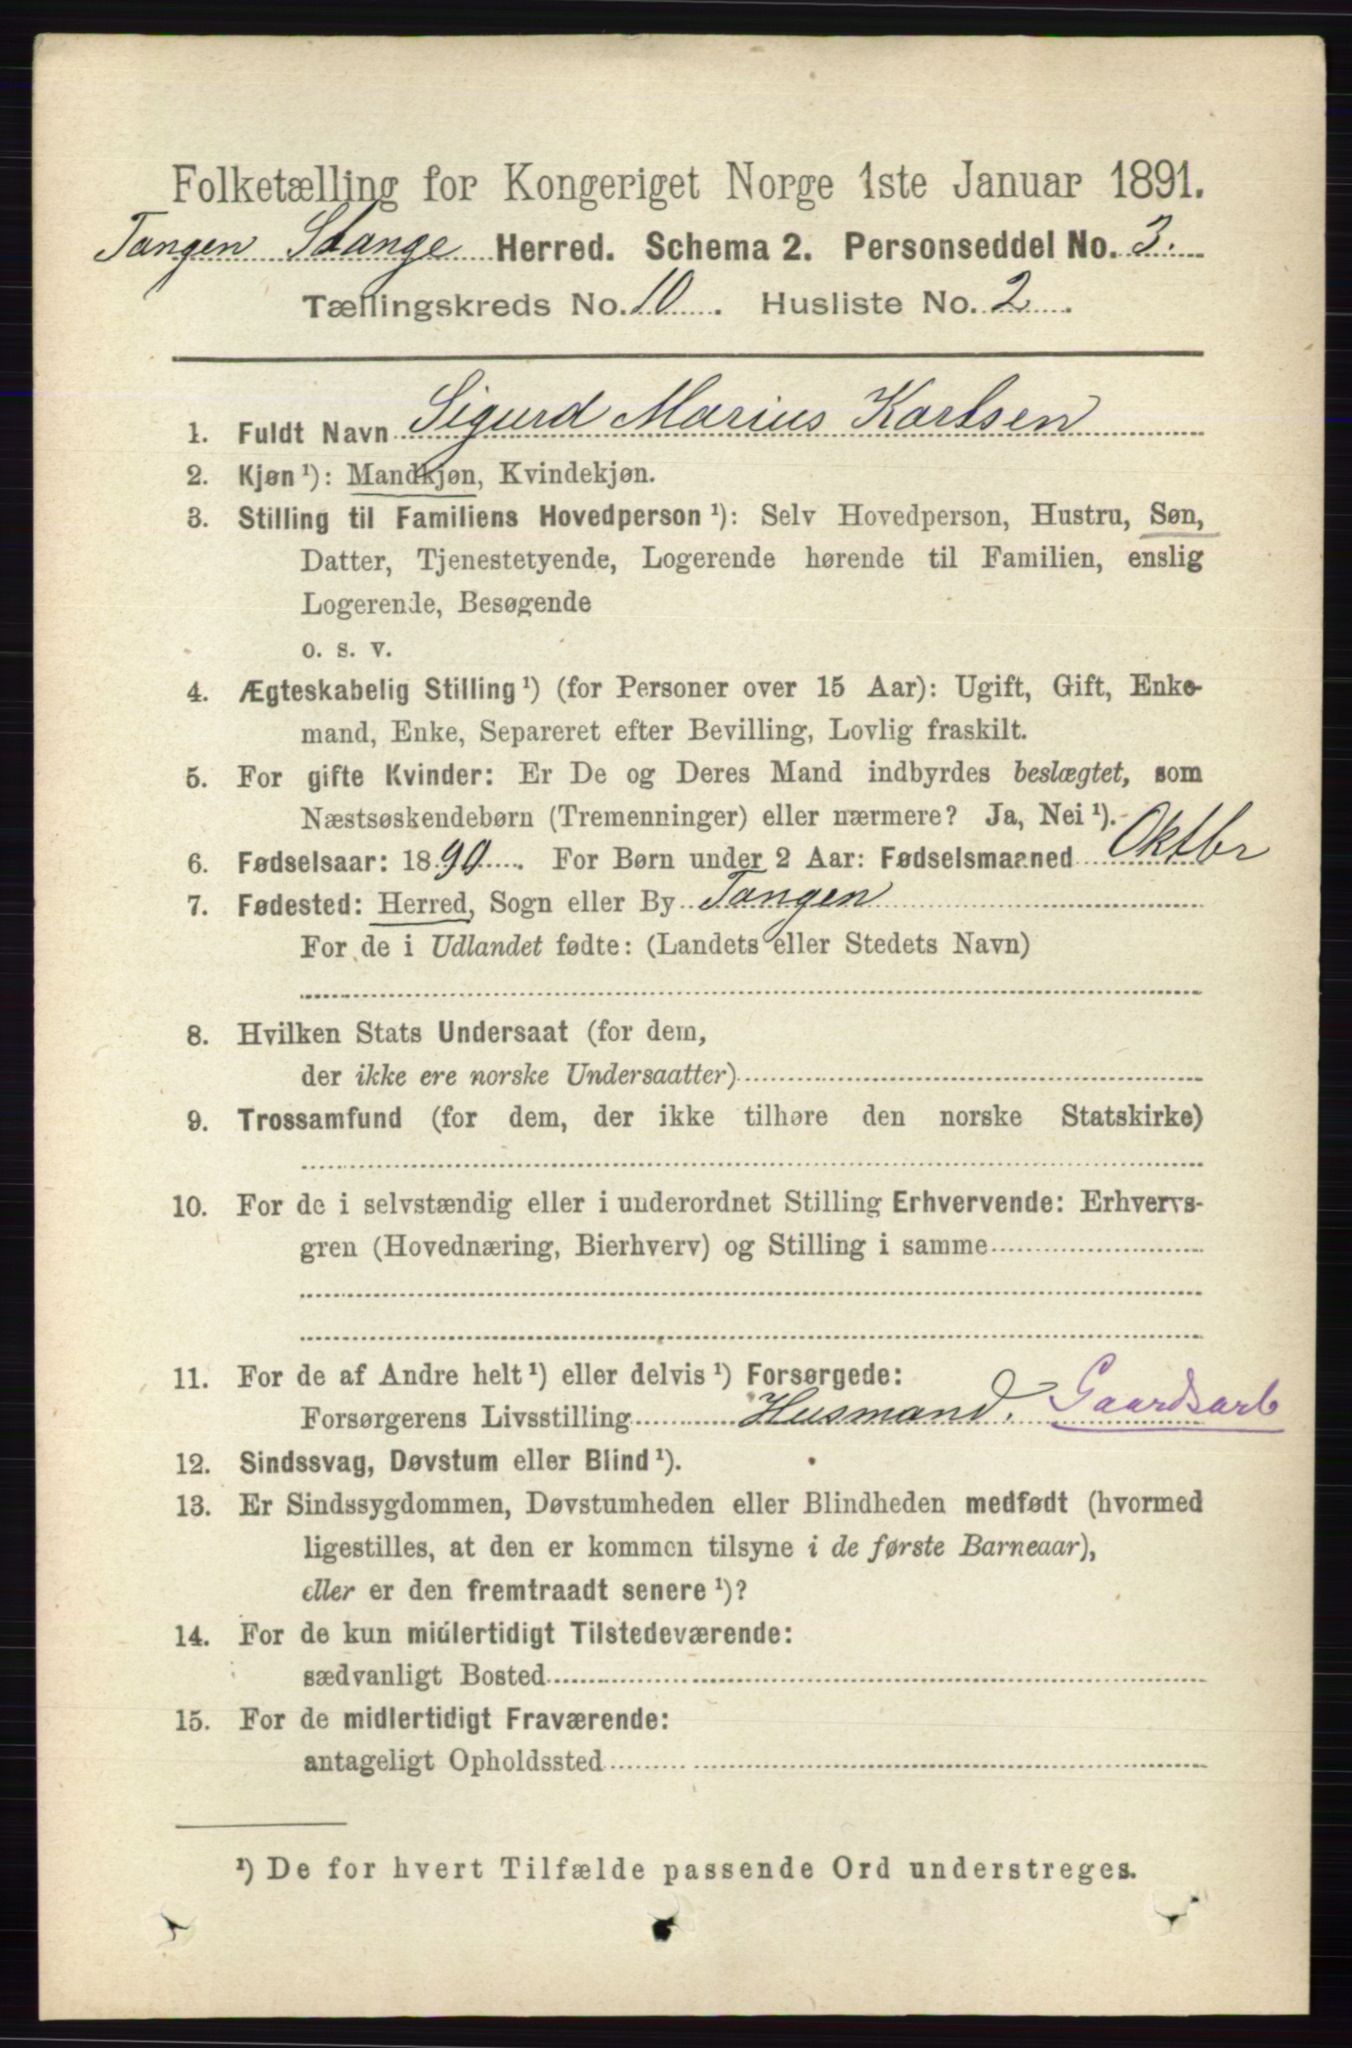 Folketælling for Kongeriget Norge 1ste Januar 1891.
Tangen Stange Herred. Schema 2. Personseddel No. 3.
Tællingskreds No. 10. Husliste No. 2.
1. Fuldt Navn Sigurd Marius Karlsen
2. Kjøn¹): Mandkjøn, Kvindekjøn.
3. Stilling til Familiens Hovedperson¹): Selv Hovedperson, Hustru, Søn,
Datter, Tjenestetyende, Logerende hørende til Familien, enslig
Logerende, Besøgende
o. s. v.
4. Ægteskabelig Stilling¹) (for Personer over 15 Aar): Ugift, Gift, Enke-
mand, Enke, Separeret efter Bevilling, Lovlig fraskilt.
5. For gifte Kvinder: Er De og Deres Mand indbyrdes beslægtet, som
Næstsøskendebørn (Tremenninger) eller nærmere? Ja, Nei¹).
6. Fødselsaar: 1890. For Børn under 2 Aar: Fødselsmaaned Oktbr
7. Fødested: Herred, Sogn eller By Tangen
For de i Udlandet fødte: (Landets eller Stedets Navn)
8. Hvilken Stats Undersaat (for dem,
der ikke ere norske Undersaatter)
9. Trossamfund (for dem, der ikke tilhøre den norske Statskirke)
10. For de i selvstændig eller i underordnet Stilling Erhvervende: Erhvervs-
gren (Hovednæring, Bierhverv) og Stilling i samme
11. For de af Andre helt¹) eller delvis¹) Forsørgede:
Forsørgerens Livsstilling Husmand. Gaardsarb
12. Sindssvag, Døvstum eller Blind¹).
13. Er Sindssygdommen, Døvstumheden eller Blindheden medfødt (hvormed
ligestilles, at den er kommen tilsyne i de første Barneaar),
eller er den fremtraadt senere¹)?
14. For de kun midlertidigt Tilstedeværende:
sædvanligt Bosted
15. For de midlertidigt Fraværende:
antageligt Opholdssted
¹) De for hvert Tilfælde passende Ord understreges.